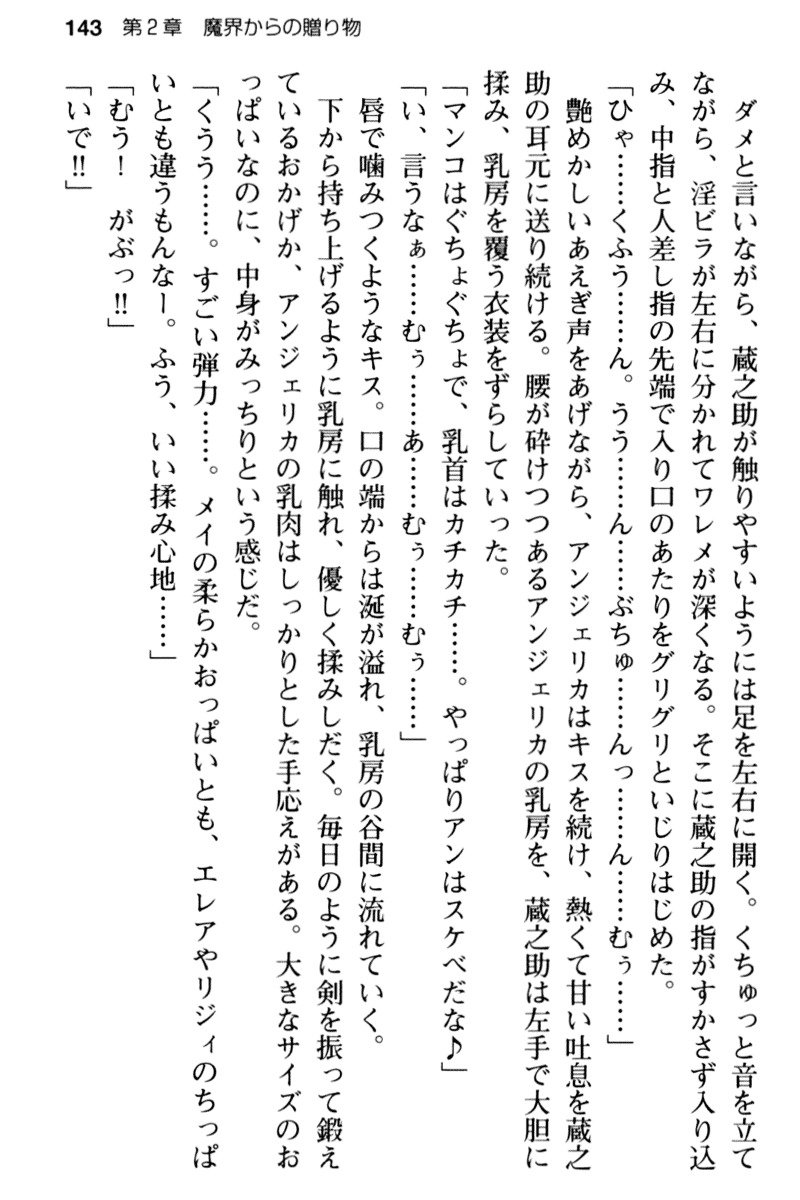 143 第2章 魔界からの贈り物
ダメと言いながら、蔵之助が触りやすいようには足を左右に開く。くちゅっと音を立て
ながら、淫ビラが左右に分かれてワレメが深くなる。そこに蔵之助の指がすかさず入り込
み、中指と人差し指の先端で入り口のあたりをグリグリといじりはじめた。
「ひゃ……くふう……ん。うう……ん……ぶちゅ……んっ……ん……むぅ……」
艶めかしいあえぎ声をあげながら、アンジェリカはキスを続け、熱くて甘い吐息を蔵之
助の耳元に送り続ける。腰が砕けつつあるアンジェリカの乳房を、蔵之助は左手で大胆に
揉み、乳房を覆う衣装をずらしていった。
「マンコはぐちょぐちょで、乳首はカチカチ……。やっぱりアンはスケベだな♪」
「い、言うなぁ……むぅ……あ……むぅ……むぅ……」
唇で噛みつくようなキス。口の端からは涎が溢れ、乳房の谷間に流れていく。
下から持ち上げるように乳房に触れ、優しく揉みしだく。毎日のように剣を振って鍛え
ているおかげか、アンジェリカの乳肉はしっかりとした手応えがある。大きなサイズのお
っぱいなのに、中身がみっちりという感じだ。
「くうう……。すごい弾力……。メイの柔らかおっぱいとも、エレアやリジィのちっぱ
いとも違うもんなー。ふう、いい揉み心地……」
「むう！　がぶっ!!」
「いで!!」